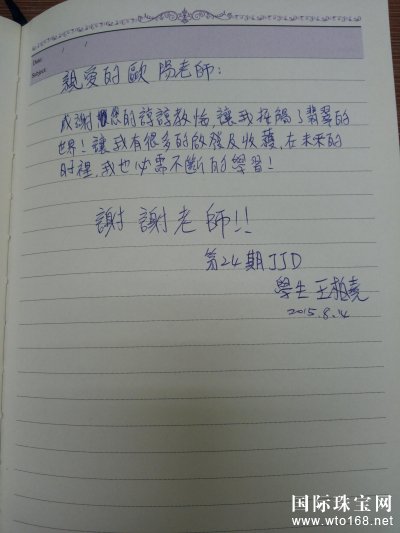 Date: / /
Subject:
親愛的歐陽老師:
感謝您的諄諄教悔,讓我接觸了翡翠的
世界!讓我有很多的啟發及收穫,在未來的
時裡,我也必需不斷的學習!
謝謝老師!!
第24期JJD
學生 王柏堯
2015.8.14
国际珠宝网
www.wto168.net